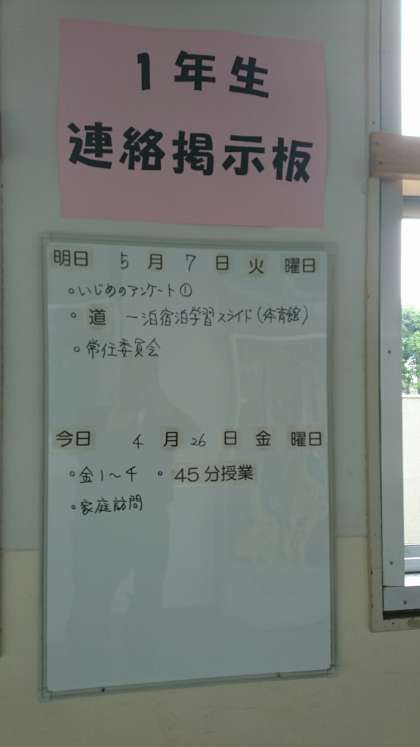 1年生
連絡掲示板
明日 5月7日火曜日
。いじめのアンケート①
。道 一泊宿泊学習スライド(体育館)
。常任委員会
今日 4月26日金曜日
。金1～4 。45分授業
。家庭訪問